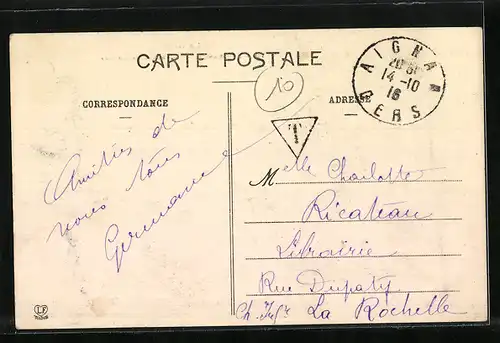 CARTE POSTALE
10
AIGNAN
GERS
14-10
16
CORRESPONDANCE
ADRESSE
T
Amitiés de
nous tous
Germaine
Melle Charlotte
Ricateau
Librairie
Rue Dupaty
Ch. Infre La Rochelle